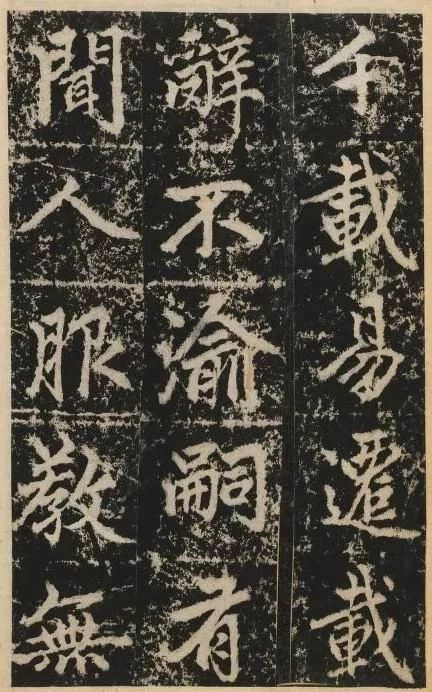 千載易遷載
辭不渝嗣有
聞人服教無